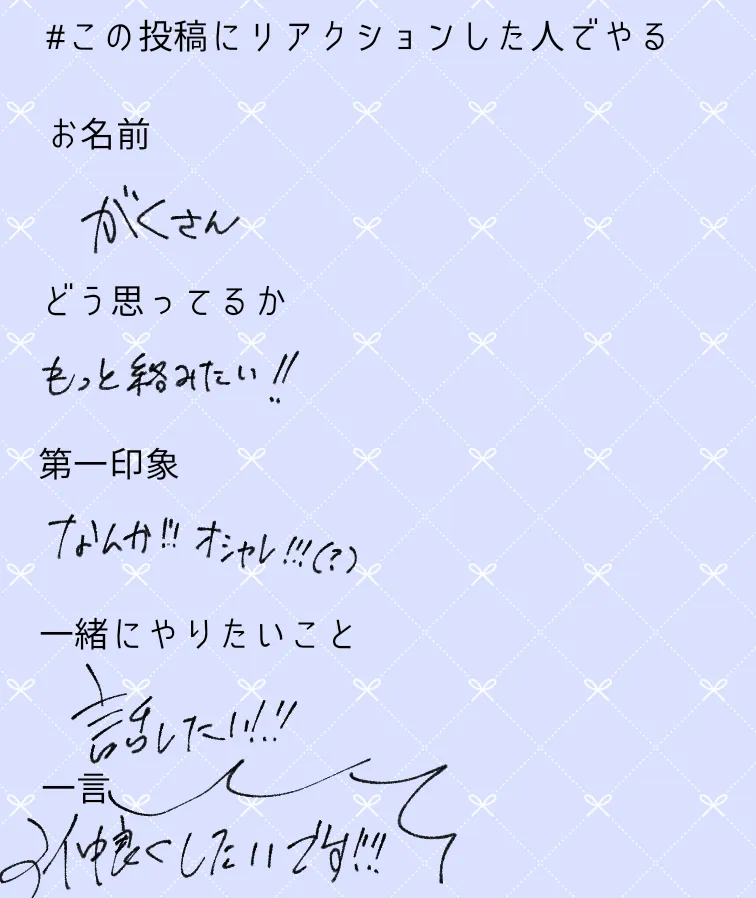 #この投稿にリアクションした人でやる
お名前
がくさん
どう思ってるか
もっと絡みたい!!
第一印象
なんか!!! オシャレ!!!(?)
一緒にやりたいこと
話したい!!!
一言
仲良くしたいです!!!